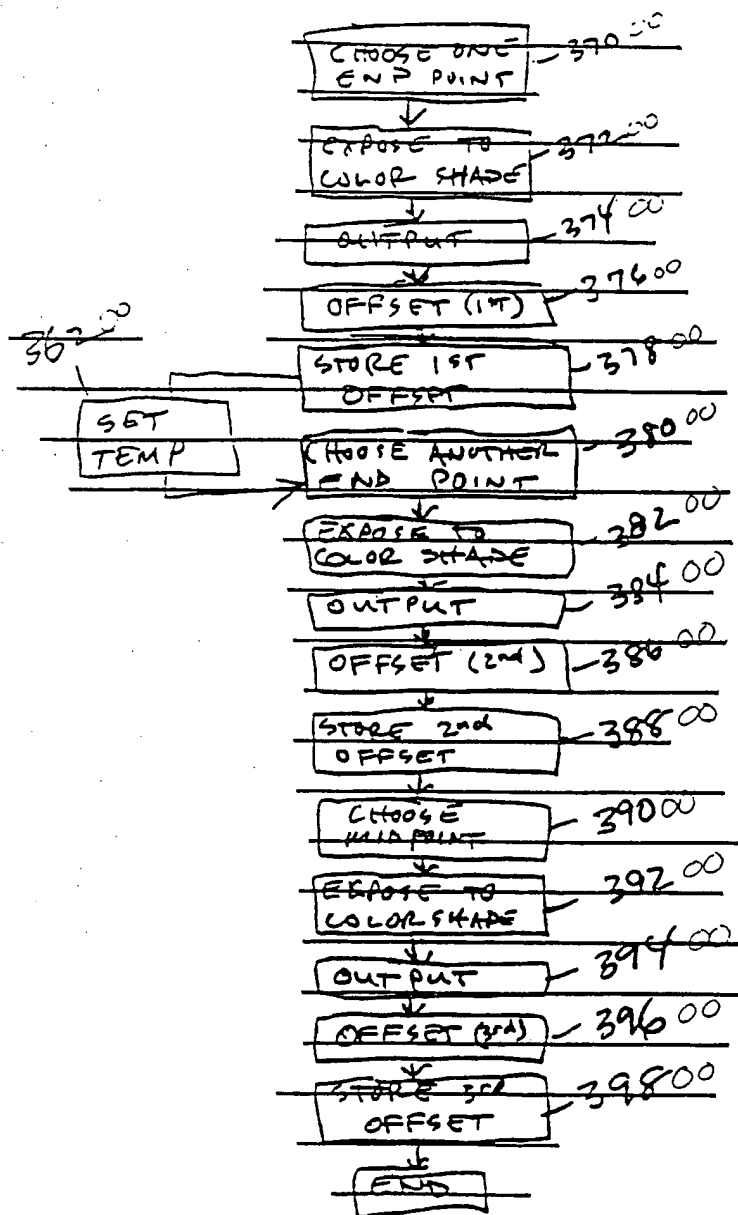 CHOOSE ONE
END POINT
37000
EXPOSE TO
COLOR SHADE
37200
OUTPUT
37400
OFFSET (1ST)
37600
STORE 1ST
OFFSET
37800
SET
TEMP
CHOOSE ANOTHER
END POINT
38000
EXPOSE TO
COLOR SHADE
38200
OUTPUT
38400
OFFSET (2nd)
38600
STORE 2nd
OFFSET
38800
CHOOSE
MIDPOINT
39000
EXPOSE TO
COLOR SHADE
39200
OUTPUT
39400
OFFSET (3rd)
39600
STORE 3rd
OFFSET
39800
END